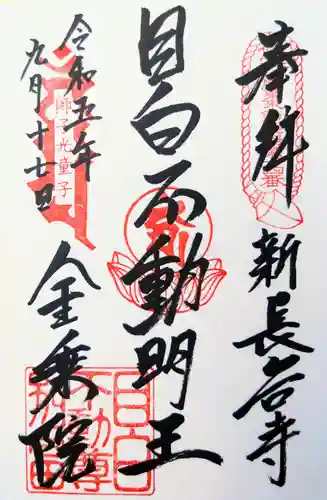 奉拝
新長谷寺
目白不動明王
令和五年
九月十七日
金乗院
目白
不動尊